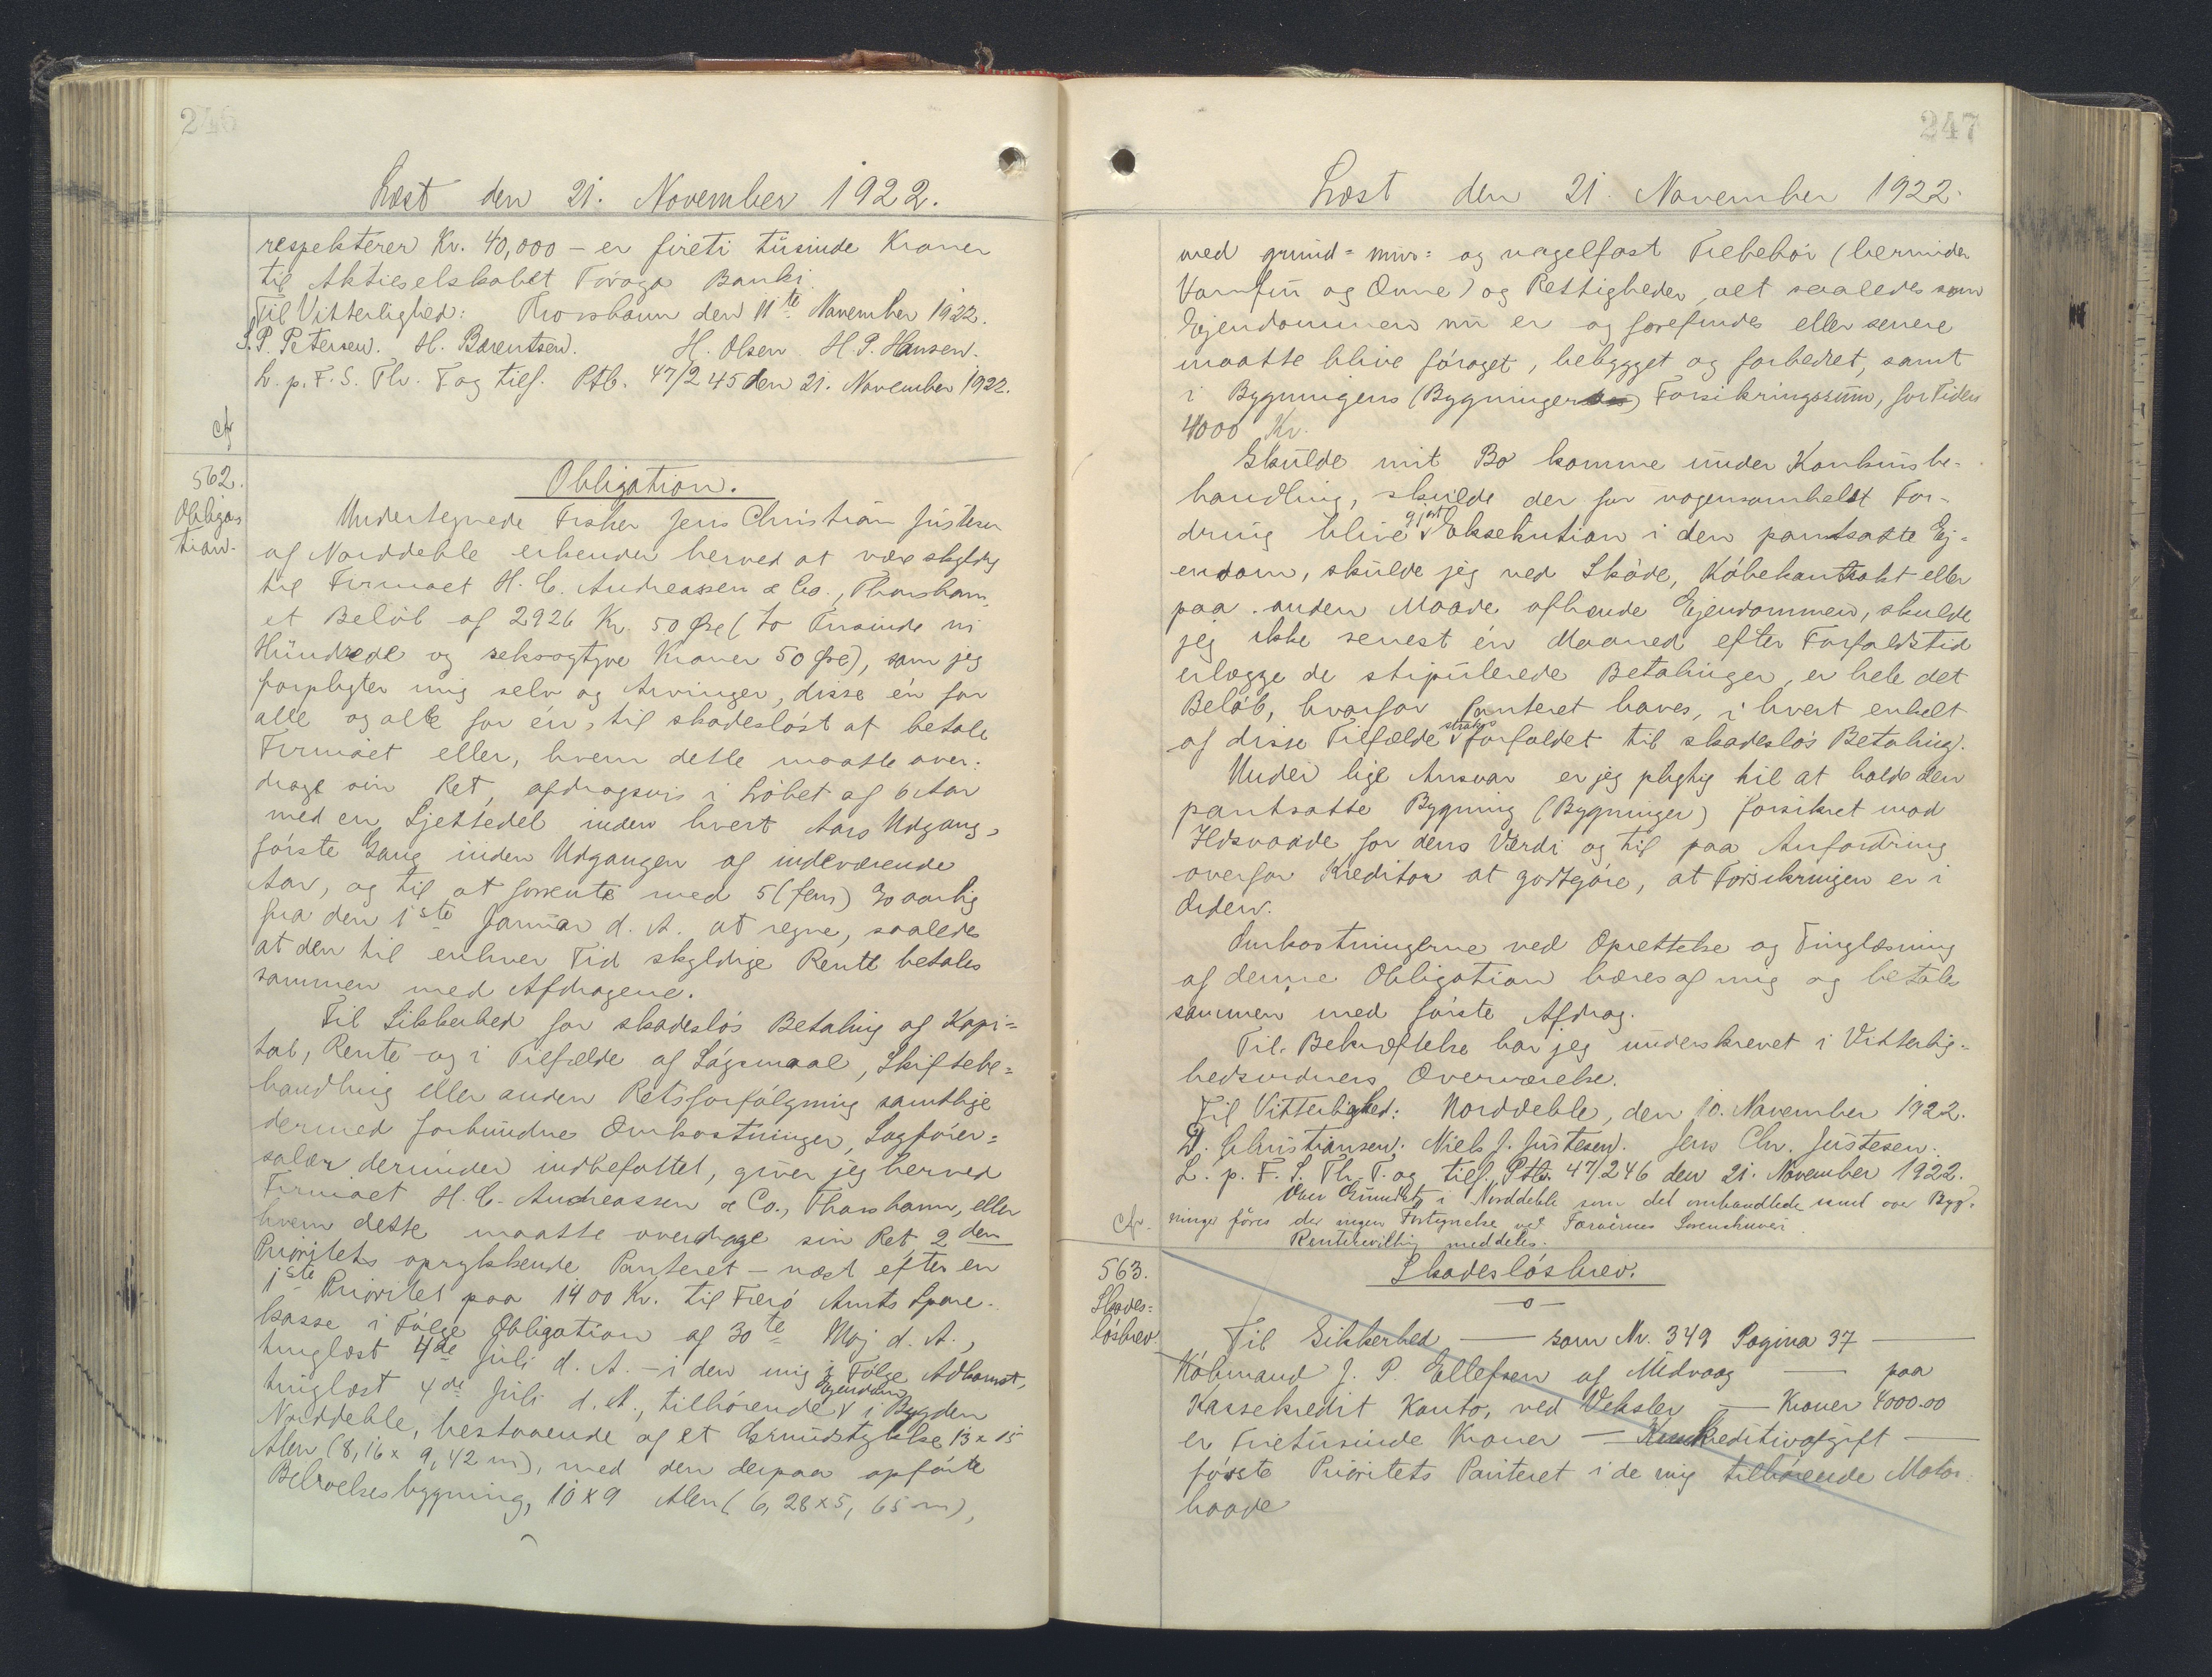 246
Læst den 21. November 1922.
respekterer Kr. 40,000 – er fireti tusinde Kroner
til Aktieselskabet Føroya Banki.
Til Vitterlighed: Thorshavn den 11te November 1922.
S. P. Petersen. H. Barentsen. H. Olsen H. P. Hansen.
L. p. F. S. Th. T og tilf. Ptb. 47/245 den 21. November 1922.
Cfr
562.
Obliga=
tion.
Obligation.
Undertegnede Fisker Jens Christian Justesen
af Norddeble erkender herved at være skyldig
til Firmaet H. C. Andreassen & Co., Thorshavn,
et Beløb af 2926 Kr. 50 Øre (to Tusinde ni
Hundrede og seksogtyve Kroner 50 Øre), som jeg
forpligter mig selv og Arvinger, disse én for
alle og alle for én, til skadesløst at betale
Firmaet eller, hvem dette maatte over=
drage sin Ret, afdragsvis i Løbet af 6 Aar
med en Sjettedel inden hvert Aars Udgang,
første Gang inden Udgangen af indeværende
Aar, og til at forrente med 5 (fem) % aarlig
fra den 1ste Januar d. A. at regne, saaledes
at den til enhver Tid skyldige Rente betales
sammen med Afdragene.
Til Sikkerhed for skadesløs Betaling af Kapi=
tal, Rente og i Tilfælde af Søgsmaal, Skiftebe=
handling eller anden Retsforfølgning samtlige
dermed forbundne Omkostninger, Sagfører=
salær derunder indbefattet, giver jeg herved
Firmaet H. C. Andreassen & Co., Thorshavn, eller
hvem dette maatte overdrage sin Ret 2den
Prioritets oprykkende Panteret – næst efter en
1ste Prioritet paa 1400 Kr. til Færø Amts Spare-
kasse i Følge Obligation af 30te Maj d. A.,
tinglæst 4de Juli d. A. – i den mig i Følge Adkomst,
tinglæst 4de Juli d. A., tilhørende Ejendom i Bygden
Norddeble, bestaaende af et Grundstykke 13 x 15
Alen (8,16 x 9,42 m), med den derpaa opførte
Beboelsesbygning, 10 x 9 Alen (6,28 x 5,65 m),
247
Læst den 21. November 1922.
med grund= mur= og nagelfast Tilbehør (herunder
Komfur og Ovne) og Rettigheder, alt saaledes som
Ejendommen nu er og forefindes eller senere
maatte blive forøget, bebygget og forbedret, samt
i Bygningens (Bygningernes) Forsikringssum, for Tiden
4000 Kr.
Skulde mit Bo komme under Konkursbe-
handling, skulde der for nogensomhelst For-
dring blive gjort Eksekution i den pantsatte Ej=
endom, skulde jeg ved Skøde, Købekontrakt eller
paa anden Maade afhænde Ejendommen, skulde
jeg ikke senest én Maaned efter Forfaldstid
erlægge de stipulerede Betalinger, er hele det
Beløb, hvorfor Panteret haves, i hvert enkelt
af disse Tilfælde straks forfaldet til skadesløs Betaling.
Under lige Ansvar er jeg pligtig til at holde den
pantsatte Bygning (Bygninger) forsikret mod
Ildsvaade for dens Værdi og til paa Anfordring
overfor Kreditor at godtgøre, at Forsikringen er i
Orden.
Omkostningerne ved Oprettelse og Tinglæsning
af denne Obligation bæres af mig og betales
sammen med første Afdrag.
Til Bekræftelse har jeg underskrevet i Vitterlig=
hedsvidners Overværelse.
Til Vitterlighed: Norddeble, den 10. November 1922.
D. Christiansen. Niels J. Justesen. Jens Chr. Justesen.
L. p. F. S. Th. T. og tilf. Ptb. 47/246 den 21. November 1922.
Over Grundstk. i Norddeble som det omhandlede samt over Byg=
ninger føres der ingen Fortegnelse ved Færøernes Sorenskriveri
Rentebevilling meddeles.
Cfr.
563.
Skades=
løsbrev
Skadesløsbrev.
—o—
Til Sikkerhed — som Nr. 349 Pagina 37 —
Købmand J. P. Ellefsen af Midvaag — paa
Kassekredit Konto, ved Veksler — Kroner 4000.00
er Firetusinde Kroner — Remkreditivafgift —
første Prioritets Panteret i de mig tilhørende Motor=
baade